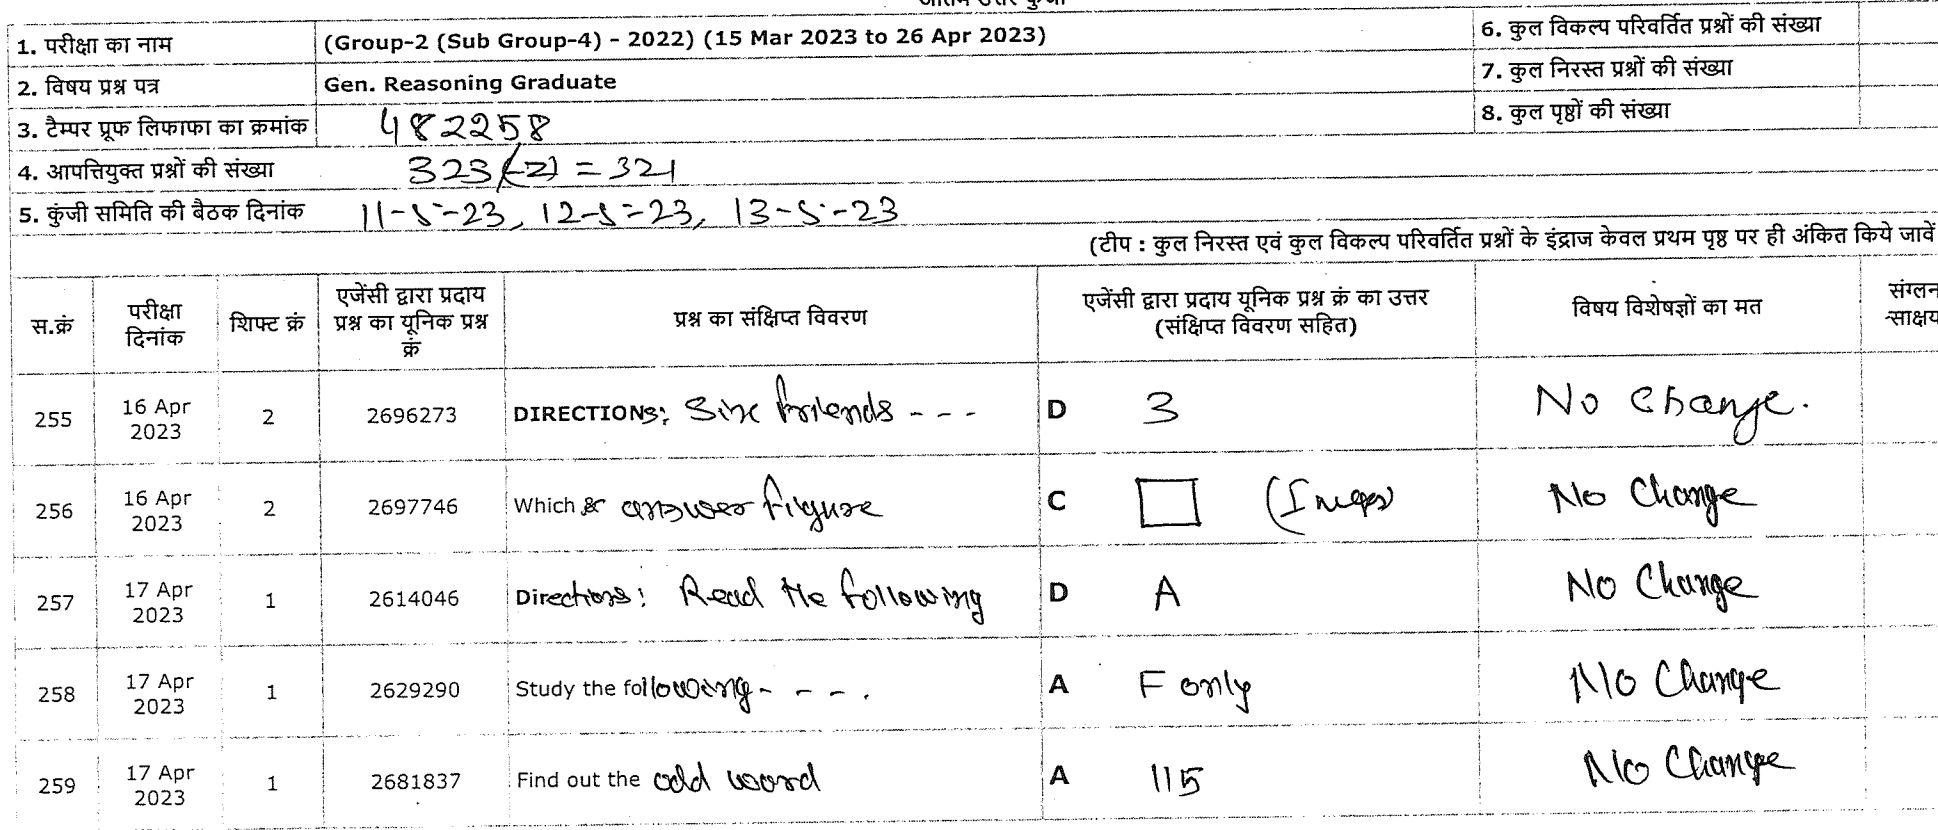 अंतिम उत्तर कुंजी
1. परीक्षा का नाम (Group-2 (Sub Group-4) - 2022) (15 Mar 2023 to 26 Apr 2023) 6. कुल विकल्प परिवर्तित प्रश्नों की संख्या
2. विषय प्रश्न पत्र Gen. Reasoning Graduate 7. कुल निरस्त प्रश्नों की संख्या
3. टैम्पर प्रूफ लिफाफा का क्रमांक 482258 8. कुल पृष्ठों की संख्या
4. आपत्तियुक्त प्रश्नों की संख्या 323(-2) = 321
5. कुंजी समिति की बैठक दिनांक 11-5-23, 12-5-23, 13-5-23
(टीप : कुल निरस्त एवं कुल विकल्प परिवर्तित प्रश्नों के इंद्राज केवल प्रथम पृष्ठ पर ही अंकित किये जावें
स.क्रं
परीक्षा
दिनांक
शिफ्ट क्रं
एजेंसी द्वारा प्रदाय
प्रश्न का यूनिक प्रश्न
क्रं
प्रश्न का संक्षिप्त विवरण
एजेंसी द्वारा प्रदाय यूनिक प्रश्न क्रं का उत्तर
(संक्षिप्त विवरण सहित)
विषय विशेषज्ञों का मत
संग्लन
साक्ष्य
255 16 Apr 2023 2 2696273 DIRECTIONS: Six friends - - - D 3 No Change.
256 16 Apr 2023 2 2697746 Which answer figure C No Change
257 17 Apr 2023 1 2614046 Directions: Read the following D A No Change
258 17 Apr 2023 1 2629290 Study the following - - - . A F only No Change
259 17 Apr 2023 1 2681837 Find out the odd word A 115 No Change